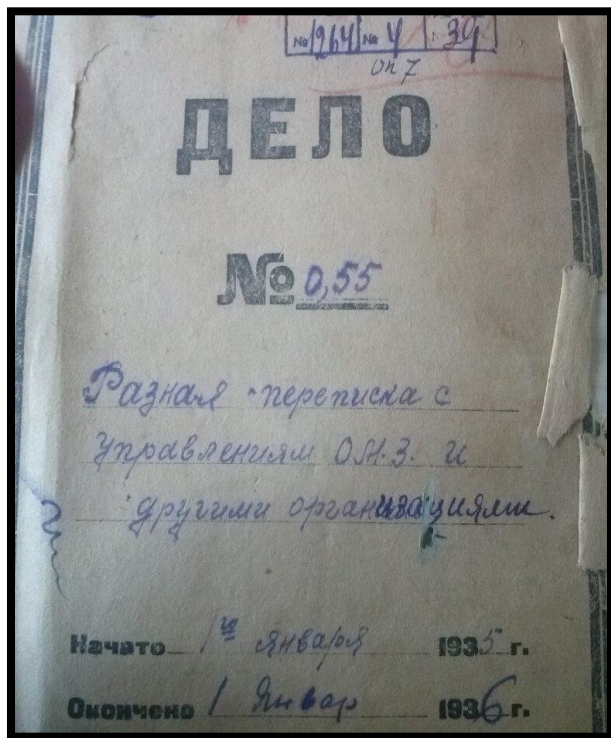 № 1264 № 4 39
оп 7
ДЕЛО
№ 0,55
Разная переписка с
управлениям О.М.З. и
другими организациями.
Начато 1го января 1935 г.
Окончено 1 Январ 1936 г.